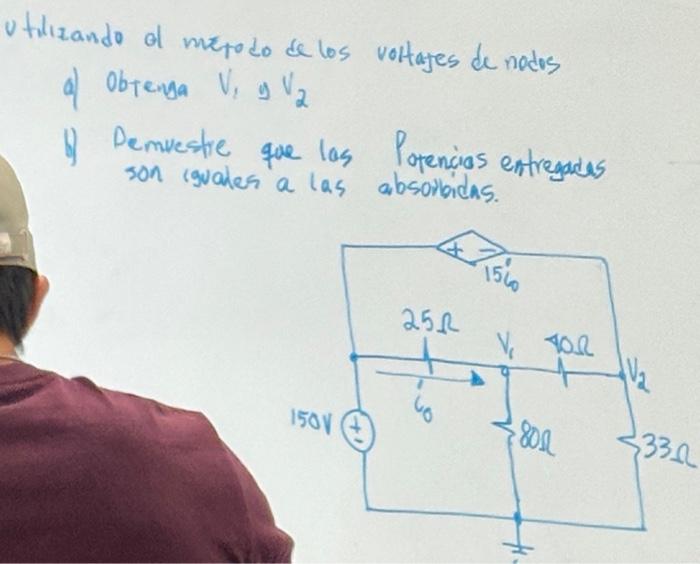 utilizando el metodo de los voltajes de nodos
a) Obtenga V₁ y V₂
b) Demuestre que las Potencias entregadas
son iguales a las absorbidas.
+ -
15i₀
25Ω
V₁
40Ω
V₂
i₀
150V
+
-
80Ω
33Ω